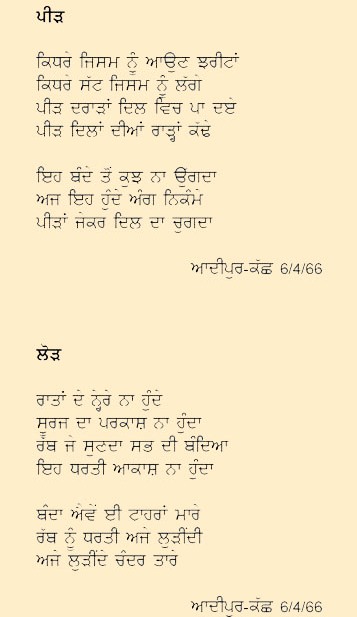 ਪੀੜ
ਕਿਧਰੇ ਜਿਸਮ ਨੂੰ ਆਉਣ ਝਰੀਟਾਂ
ਕਿਧਰੇ ਸੱਟ ਜਿਸਮ ਨੂੰ ਲੱਗੇ
ਪੀੜ ਦਰਾੜਾਂ ਦਿਲ ਵਿਚ ਪਾ ਦਏ
ਪੀੜ ਦਿਲਾਂ ਦੀਆਂ ਰਾੜ੍ਹਾਂ ਕੱਢੇ
ਇਹ ਬੰਦੇ ਤੋਂ ਕੁਝ ਨਾ ਉਂਗਦਾ
ਅਜ ਇਹ ਹੁੰਦੇ ਅੰਗ ਨਿਕੰਮੇ
ਪੀੜਾਂ ਜੇਕਰ ਦਿਲ ਦਾ ਚੁਗਦਾ
ਆਦੀਪੁਰ-ਕੱਛ 6/4/66
ਲੋੜ
ਰਾਤਾਂ ਦੇ ਨ੍ਹੇਰੇ ਨਾ ਹੁੰਦੇ
ਸੂਰਜ ਦਾ ਪਰਕਾਸ਼ ਨਾ ਹੁੰਦਾ
ਰੱਬ ਜੇ ਸੁਣਦਾ ਸਭ ਦੀ ਬੰਦਿਆ
ਇਹ ਧਰਤੀ ਆਕਾਸ਼ ਨਾ ਹੁੰਦਾ
ਬੰਦਾ ਐਵੇਂ ਈ ਟਾਹਰਾਂ ਮਾਰੇ
ਰੱਬ ਨੂੰ ਧਰਤੀ ਅਜੇ ਲੁੜੀਂਦੀ
ਅਜੇ ਲੁੜੀਂਦੇ ਚੰਦਰ ਤਾਰੇ
ਆਦੀਪੁਰ-ਕੱਛ 6/4/66